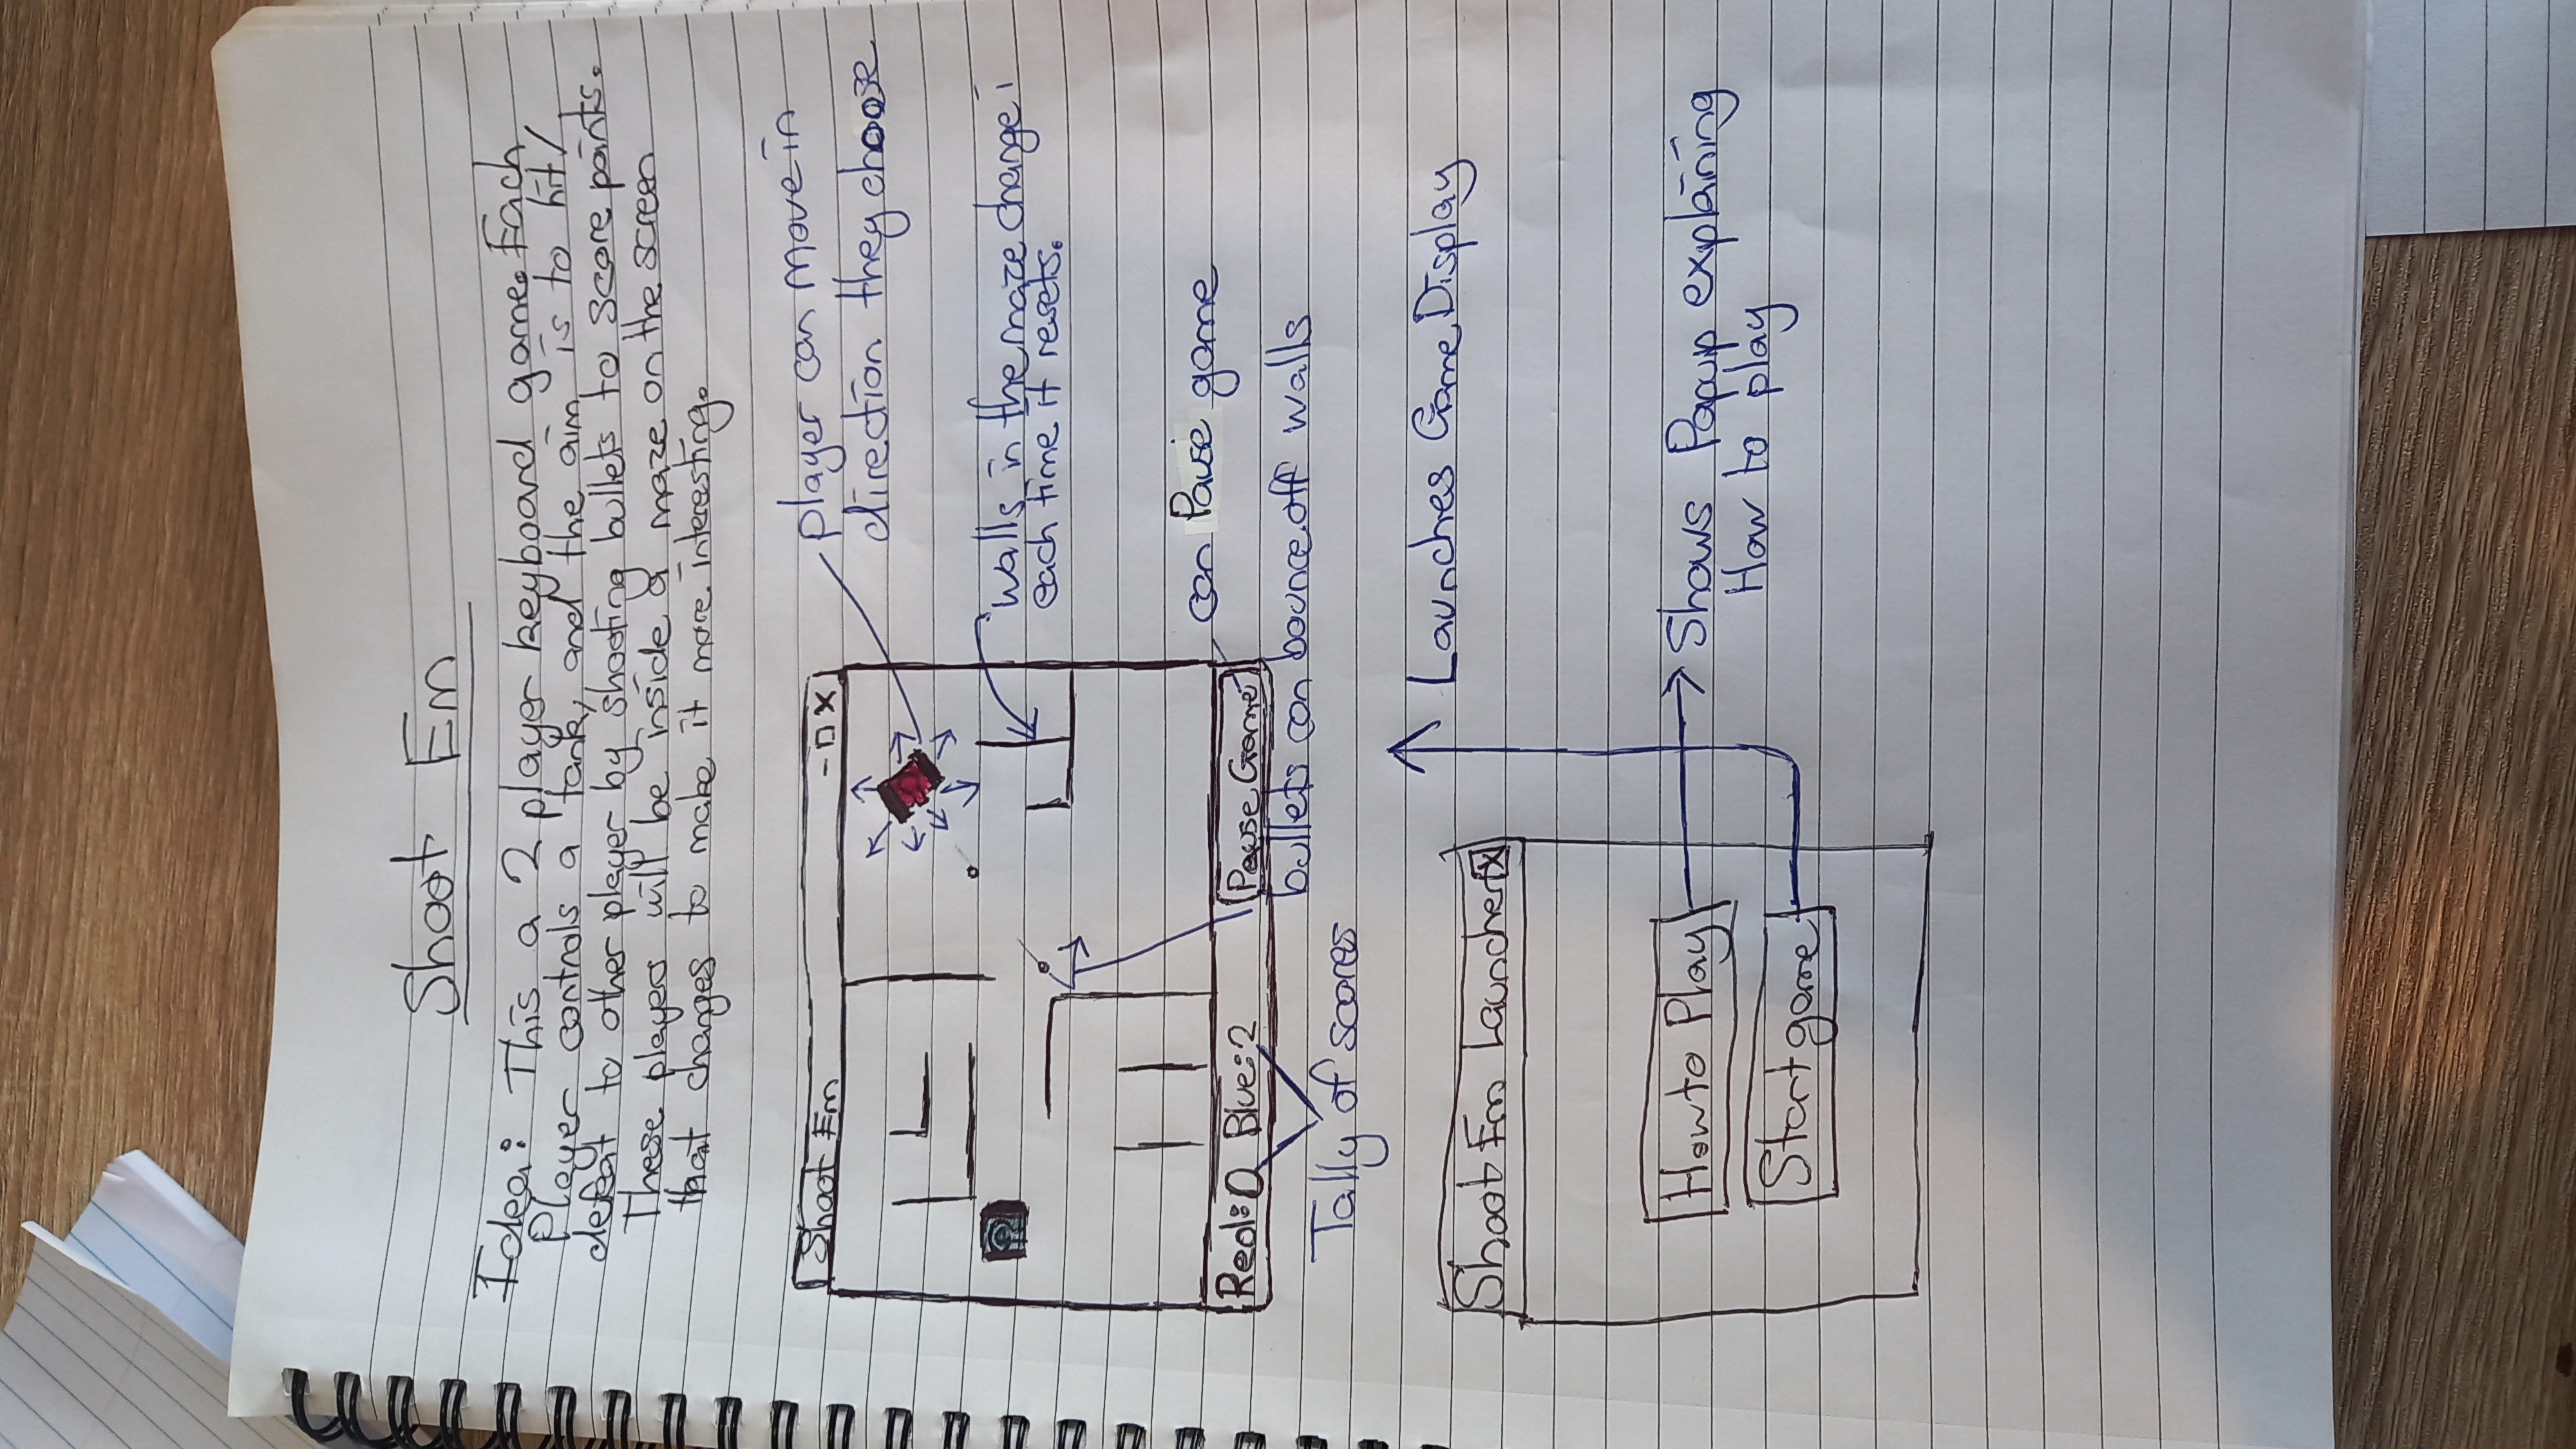 Shoot Em
Idea: This a 2 player keyboard game. Each
Player controls a tank, and the aim is to hit/
defeat to other player by shooting bullets to score points.
These players will be inside a maze on the screen
that changes to make it more interesting.
Shoot Em - □ X
player can move in
direction they choose
walls in the maze change
each time it resets.
can Pause game
Red: 0 Blue: 2 Pause Game
bullets can bounce off walls
Tally of scores
Launches Game Display
Shoot Em Launcher X
How to Play
Shows Popup explaining
How to play
Start game